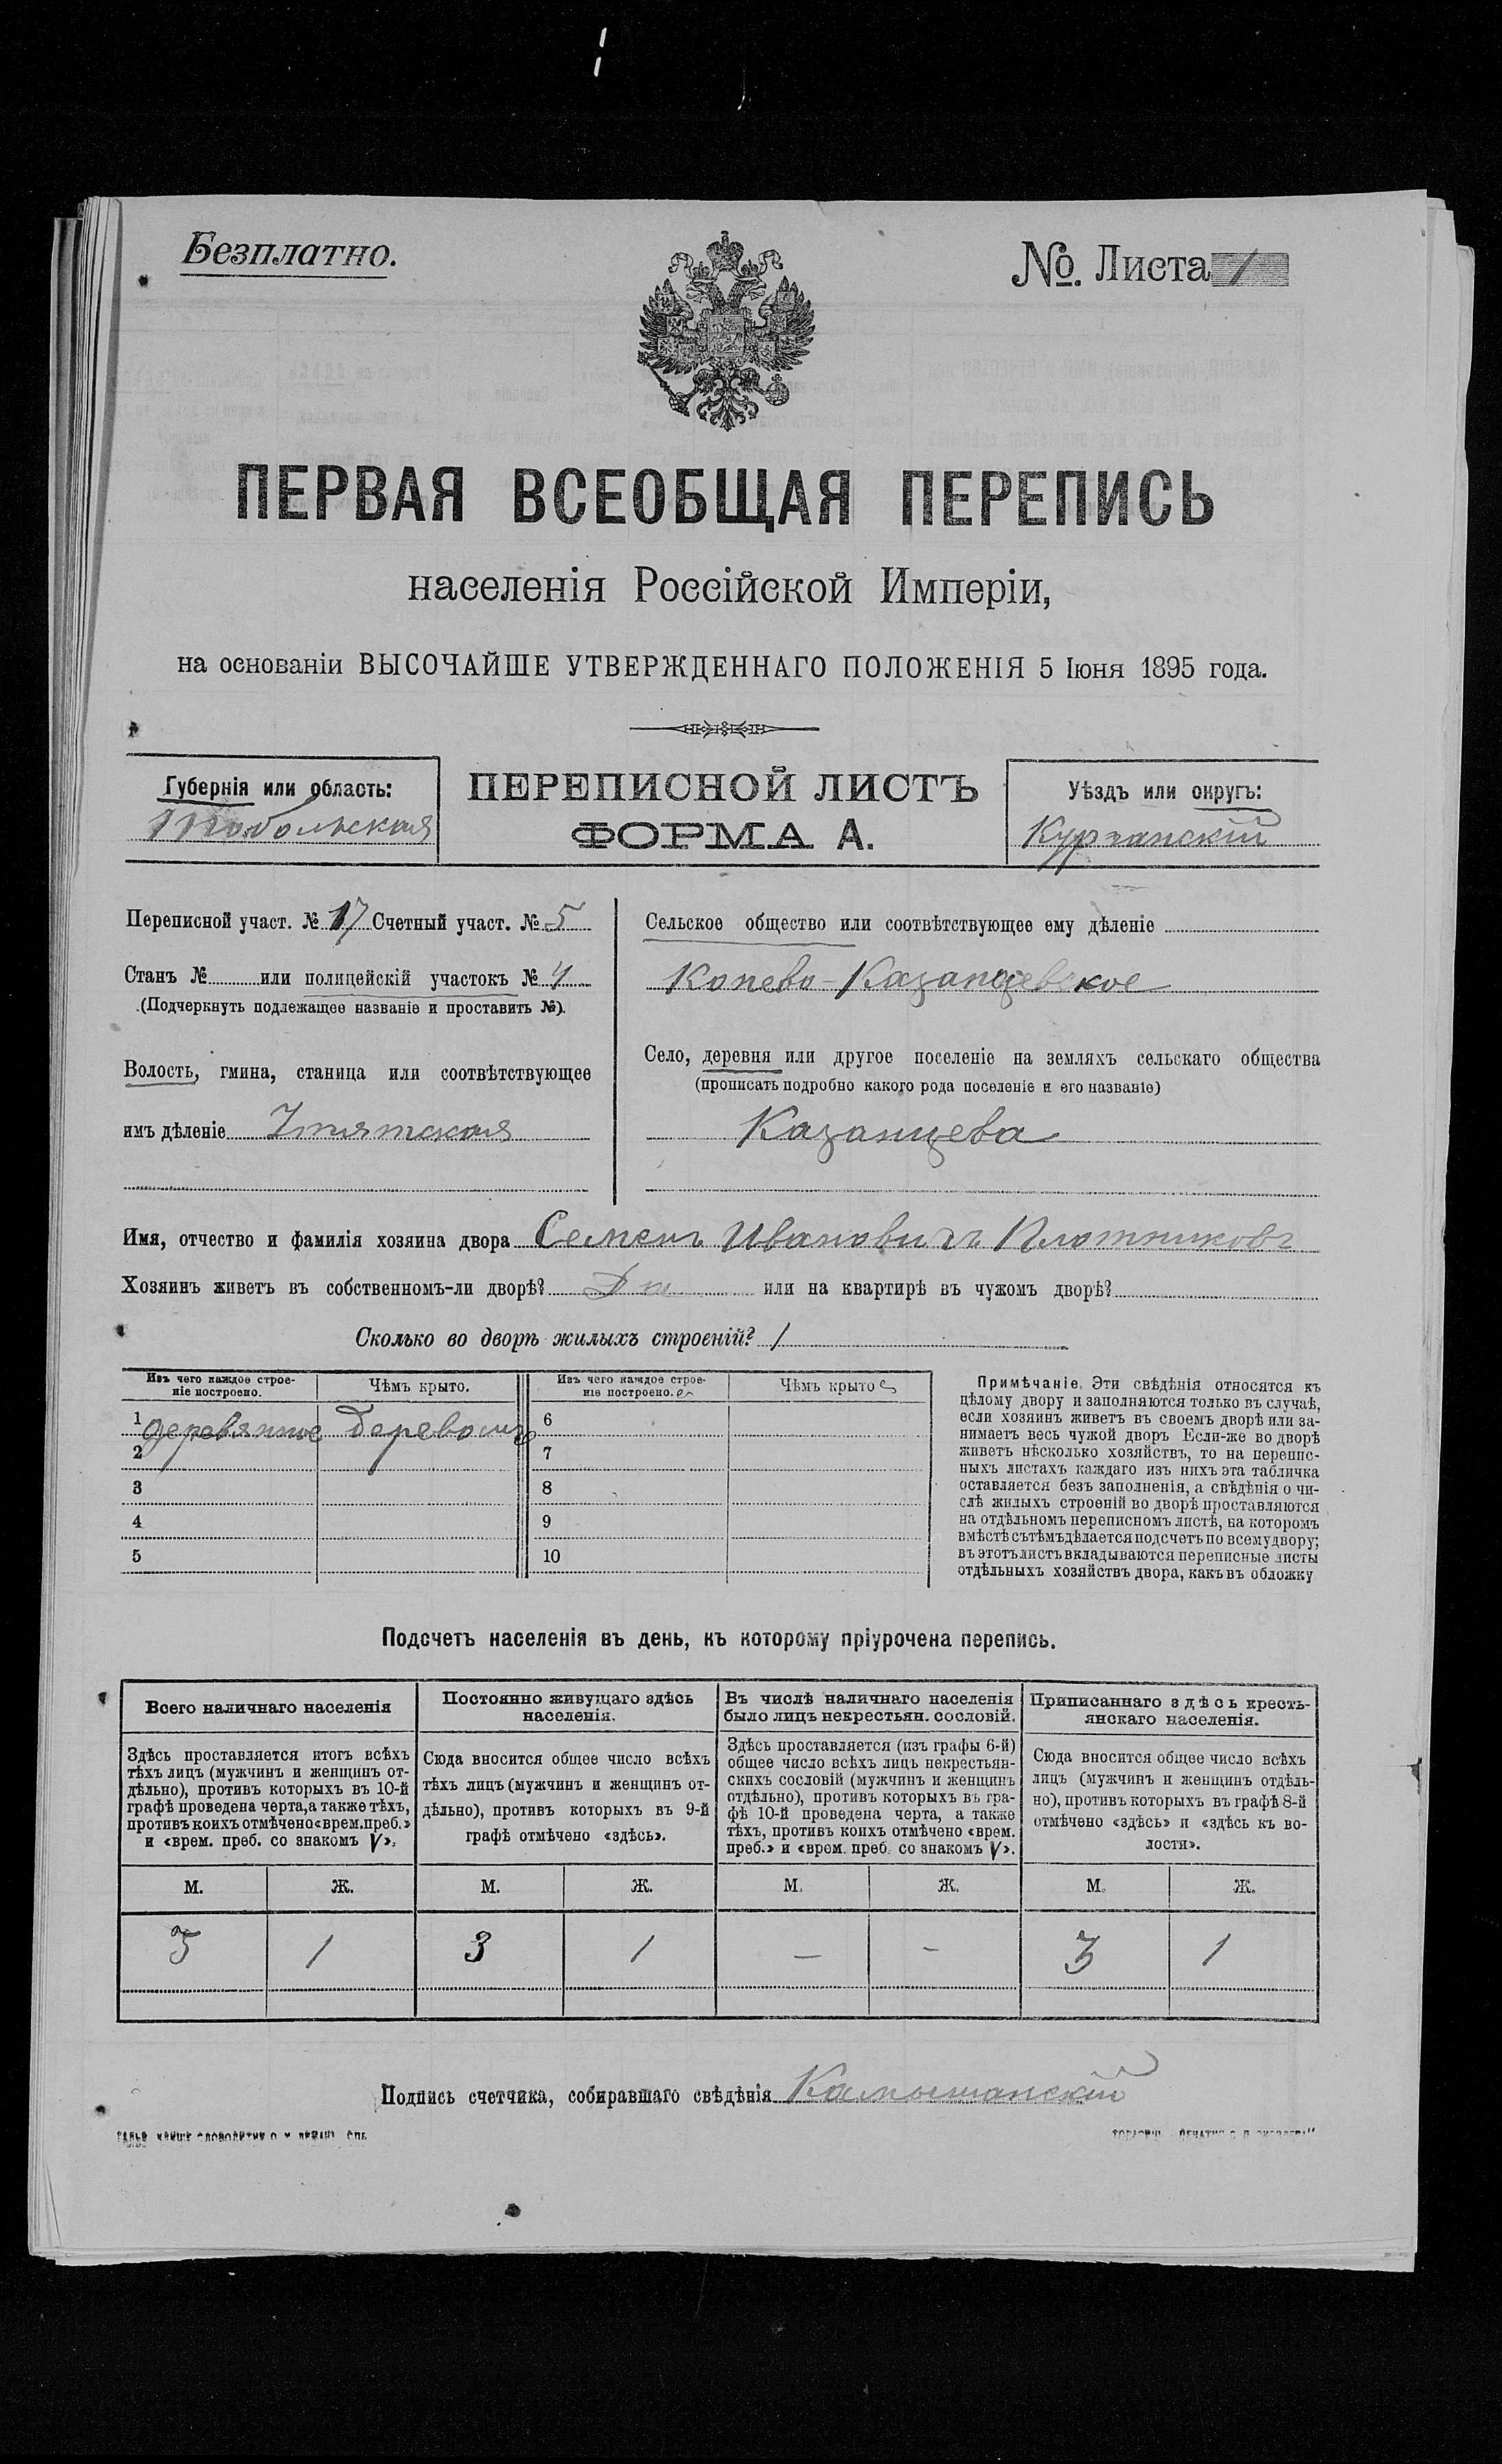 Безплатно.
№. Листа 1
ПЕРВАЯ ВСЕОБЩАЯ ПЕРЕПИСЬ
населенія Россійской Имперіи,
на основаніи ВЫСОЧАЙШЕ УТВЕРЖДЕННАГО ПОЛОЖЕНІЯ 5 Іюня 1895 года.
Губернія или область:
Тобольская
ПЕРЕПИСНОЙ ЛИСТЪ
ФОРМА А.
Уѣздъ или округъ:
Курганскій
Переписной участ. № 17 Счетный участ. № 5
Станъ № или полицейскій участокъ № 4
(Подчеркнуть подлежащее названіе и проставить №).
Волость, гмина, станица или соотвѣтствующее
имъ дѣленіе Утятская
Сельское общество или соотвѣтствующее ему дѣленіе
Копево-Казанцевское
Село, деревня или другое поселеніе на земляхъ сельскаго общества
(прописать подробно какого рода поселеніе и его названіе)
Казанцева
Имя, отчество и фамилія хозяина двора Семенъ Ивановичъ Плотниковъ
Хозяинъ живетъ въ собственномъ-ли дворѣ? Да или на квартирѣ въ чужомъ дворѣ?
Сколько во дворѣ жилыхъ строеній? 1
Изъ чего каждое строе-
ніе построено.
Чѣмъ крыто.
Изъ чего каждое строе-
ніе построено.
Чѣмъ крыто
1 деревянное деревомъ
2
3
4
5
6
7
8
9
10
Примѣчаніе. Эти свѣдѣнія относятся къ
цѣлому двору и заполняются только въ случаѣ,
если хозяинъ живетъ въ своемъ дворѣ или за-
нимаетъ весь чужой дворъ Если-же во дворѣ
живетъ нѣсколько хозяйствъ, то на перепис-
ныхъ листахъ каждаго изъ нихъ эта табличка
оставляется безъ заполненія, а свѣдѣнія о чи-
слѣ жилыхъ строеній во дворѣ проставляются
на отдѣльномъ переписномъ листѣ, на которомъ
вмѣстѣ съ тѣмъ дѣлается подсчетъ по всему двору;
въ этотъ листъ вкладываются переписные листы
отдѣльныхъ хозяйствъ двора, какъ въ обложку
Подсчетъ населенія въ день, къ которому пріурочена перепись.
Всего наличнаго населенія
Здѣсь проставляется итогъ всѣхъ
тѣхъ лицъ (мужчинъ и женщинъ от-
дѣльно), противъ которыхъ въ 10-й
графѣ проведена черта, а также тѣхъ,
противъ коихъ отмѣчено «врем. преб.»
и «врем. преб. со знакомъ V».
Постоянно живущаго здѣсь
населенія.
Сюда вносится общее число всѣхъ
тѣхъ лицъ (мужчинъ и женщинъ от-
дѣльно), противъ которыхъ въ 9-й
графѣ отмѣчено «здѣсь».
Въ числѣ наличнаго населенія
было лицъ некрестьян. сословій.
Здѣсь проставляется (изъ графы 6-й)
общее число всѣхъ лицъ некрестьян-
скихъ сословій (мужчинъ и женщинъ
отдѣльно), противъ которыхъ въ гра-
фѣ 10-й проведена черта, а также
тѣхъ, противъ коихъ отмѣчено «врем.
преб.» и «врем. преб. со знакомъ V».
Приписаннаго здѣсь кресть-
янскаго населенія.
Сюда вносится общее число всѣхъ
лицъ (мужчинъ и женщинъ отдѣль-
но), противъ которыхъ въ графѣ 8-й
отмѣчено «здѣсь» и «здѣсь къ во-
лости».
М. Ж. М. Ж. М. Ж. М. Ж.
3 1 3 1 — - 3 1
Подпись счетчика, собиравшаго свѣдѣнія Камышанскій